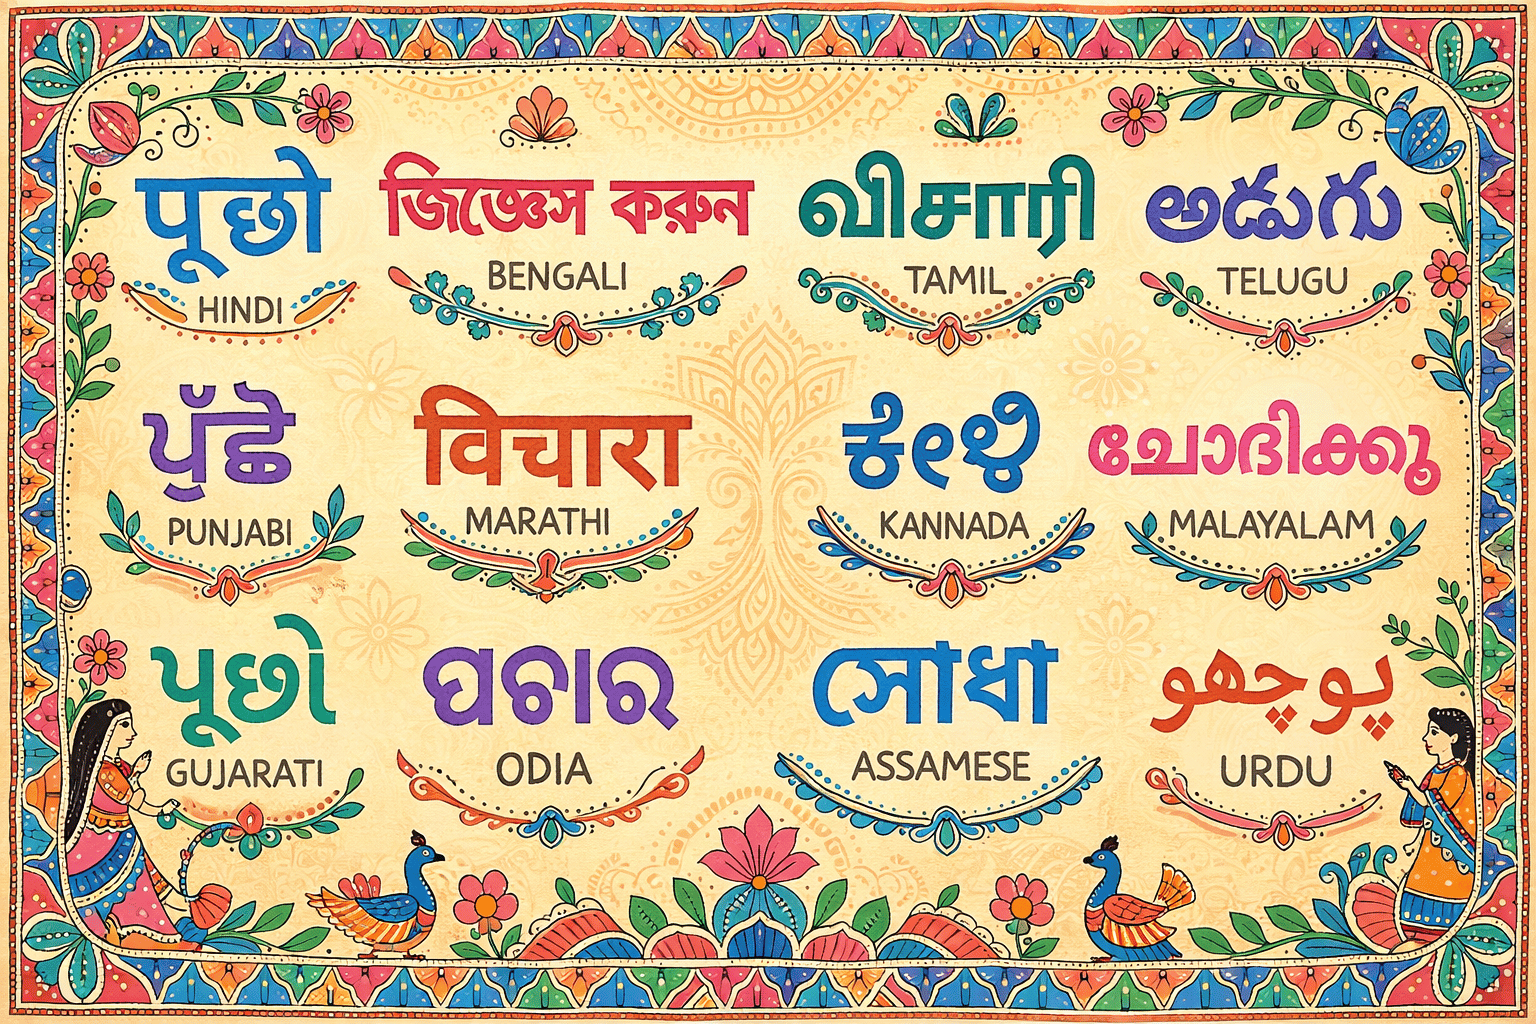 पूछो
HINDI
জিজ্ঞেস করুন
BENGALI
விசாரி
TAMIL
అడుగు
TELUGU
ਪੁੱਛੋ
PUNJABI
विचारा
MARATHI
ಕೇಳಿ
KANNADA
ചോദിക്കൂ
MALAYALAM
પૂછો
GUJARATI
ପଚାର
ODIA
সোধা
ASSAMESE
پوچھو
URDU